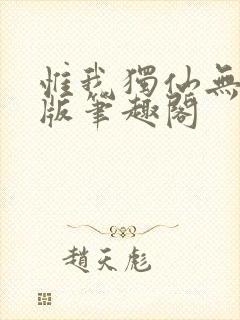 惟我獨仙無
版筆趣閣
趙天彪